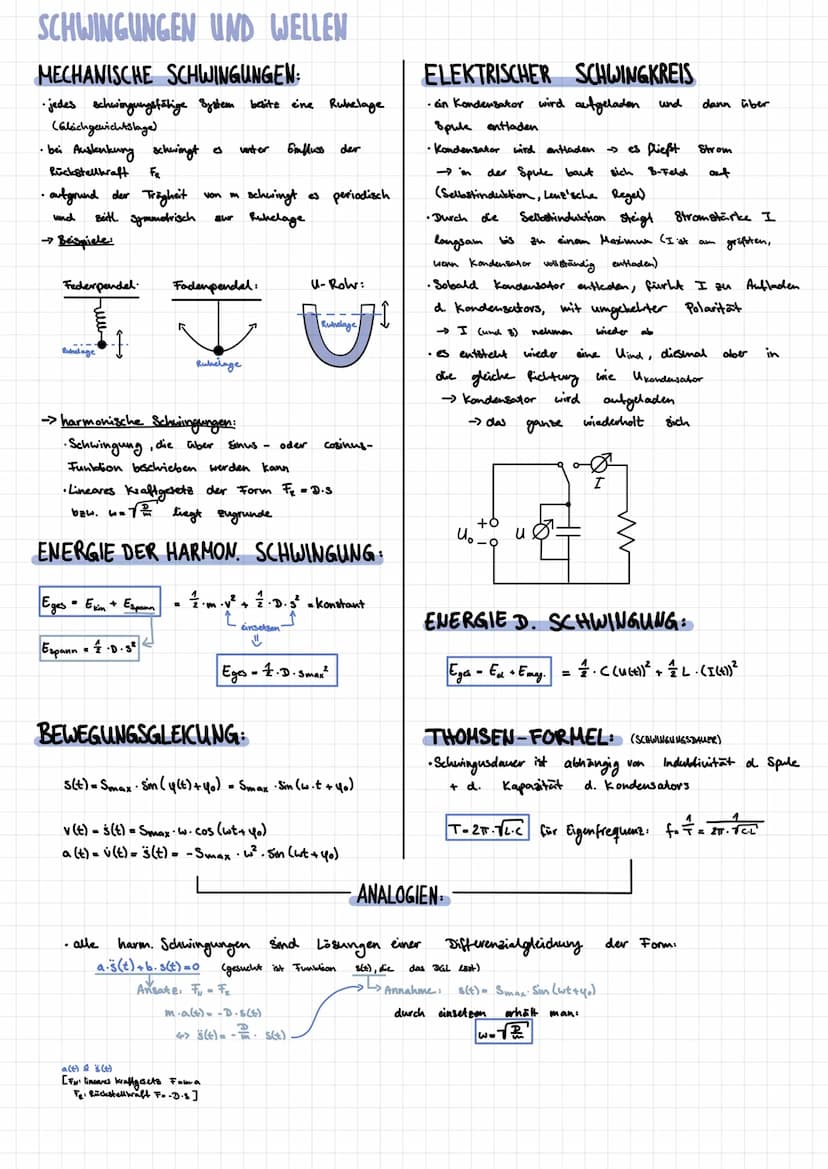 SCHWINGUNGEN UND WELLEN
MECHANISCHE SCHWINGUNGEN:
· jedes schwingungsfähige System besitz eine Ruhelage
(Gleichgewichtslage)
· bei Auslenkung schwingt es unter Einfluss der
Rückstellkraft F_R
· aufgrund der Trägheit von m schwingt es periodisch
und zeitl. symmetrisch zur Ruhelage
→ Beispiele:
Federpendel: Fadenpendel: U-Rohr:
Ruhelage
Ruhelage
Ruhelage
→ harmonische Schwingungen:
· Schwingung, die über sinus- oder cosinus-
Funktion beschrieben werden kann
· Lineares Kraftgesetz der Form F_R = D·s
bzw. ω=√D/m liegt zugrunde
ENERGIE DER HARMON. SCHWINGUNG:
E_ges = E_kin + E_spann = 1/2·m·v² + 1/2·D·s² = konstant
einsetzen
E_spann = 1/2·D·s²
E_ges = 1/2·D·s_max²
BEWEGUNGSGLEICUNG:
s(t) = s_max · sin(φ(t)+φ₀) = s_max · sin(ω·t+φ₀)
v(t) = ṡ(t) = s_max·ω·cos(ωt+φ₀)
a(t) = v̇(t) = s̈(t) = -s_max·ω²·sin(ωt+φ₀)
ELEKTRISCHER SCHWINGKREIS
· ein Kondensator wird aufgeladen und dann über
Spule entladen
· Kondensator wird entladen → es fließt Strom
→ in der Spule baut sich B-Feld auf
(Selbstinduktion, Lenz'sche Regel)
· Durch die Selbstinduktion steigt Stromstärke I
langsam bis zu einem Maximum (I ist am größten,
wann Kondensator vollständig entladen)
· Sobald Kondensator entladen, führt I zu Aufladen
d. Kondensators, mit umgekehrter Polarität
→ I (und B) nehmen wieder ab
· es entsteht wieder eine U_ind, diesmal aber in
die gleiche Richtung wie U_Kondensator
→ Kondensator wird aufgeladen
→ das ganze wiederholt sich
I
U₀ +
-
U
ENERGIE D. SCHWINGUNG:
E_ges = E_el + E_mag. = 1/2·C(U(t))² + 1/2 L·(I(t))²
THOMSEN-FORMEL: (SCHWINGUNGSDAUER)
· Schwingusdauer ist abhängig von Induktivität d. Spule
+ d. Kapazität d. Kondensators
T=2π·√L·C für Eigenfrequenz: f=1/T = 1/2π·√C·L
ANALOGIEN:
· alle harm. Schwingungen sind Lösungen einer Differenzialgleichung der Form:
a·s̈(t)+b·s(t)=0 (gesucht ist Funktion s(t), die das DGL löst)
Ansatz: F_N = F_R
→ Annahme: s(t) = s_max·sin(ωt+φ₀)
m·a(t) = -D·s(t)
durch einsetzen erhält man:
⇔ s̈(t) = -D/m · s(t)
ω=√D/m
a(t) ≙ s̈(t)
[F_N: lineares Kraftgesetz F=m·a
F_R: Rückstellkraft F=-D·s]